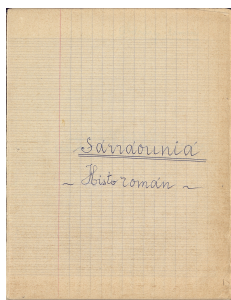 Sarraounia
~ Histo román ~